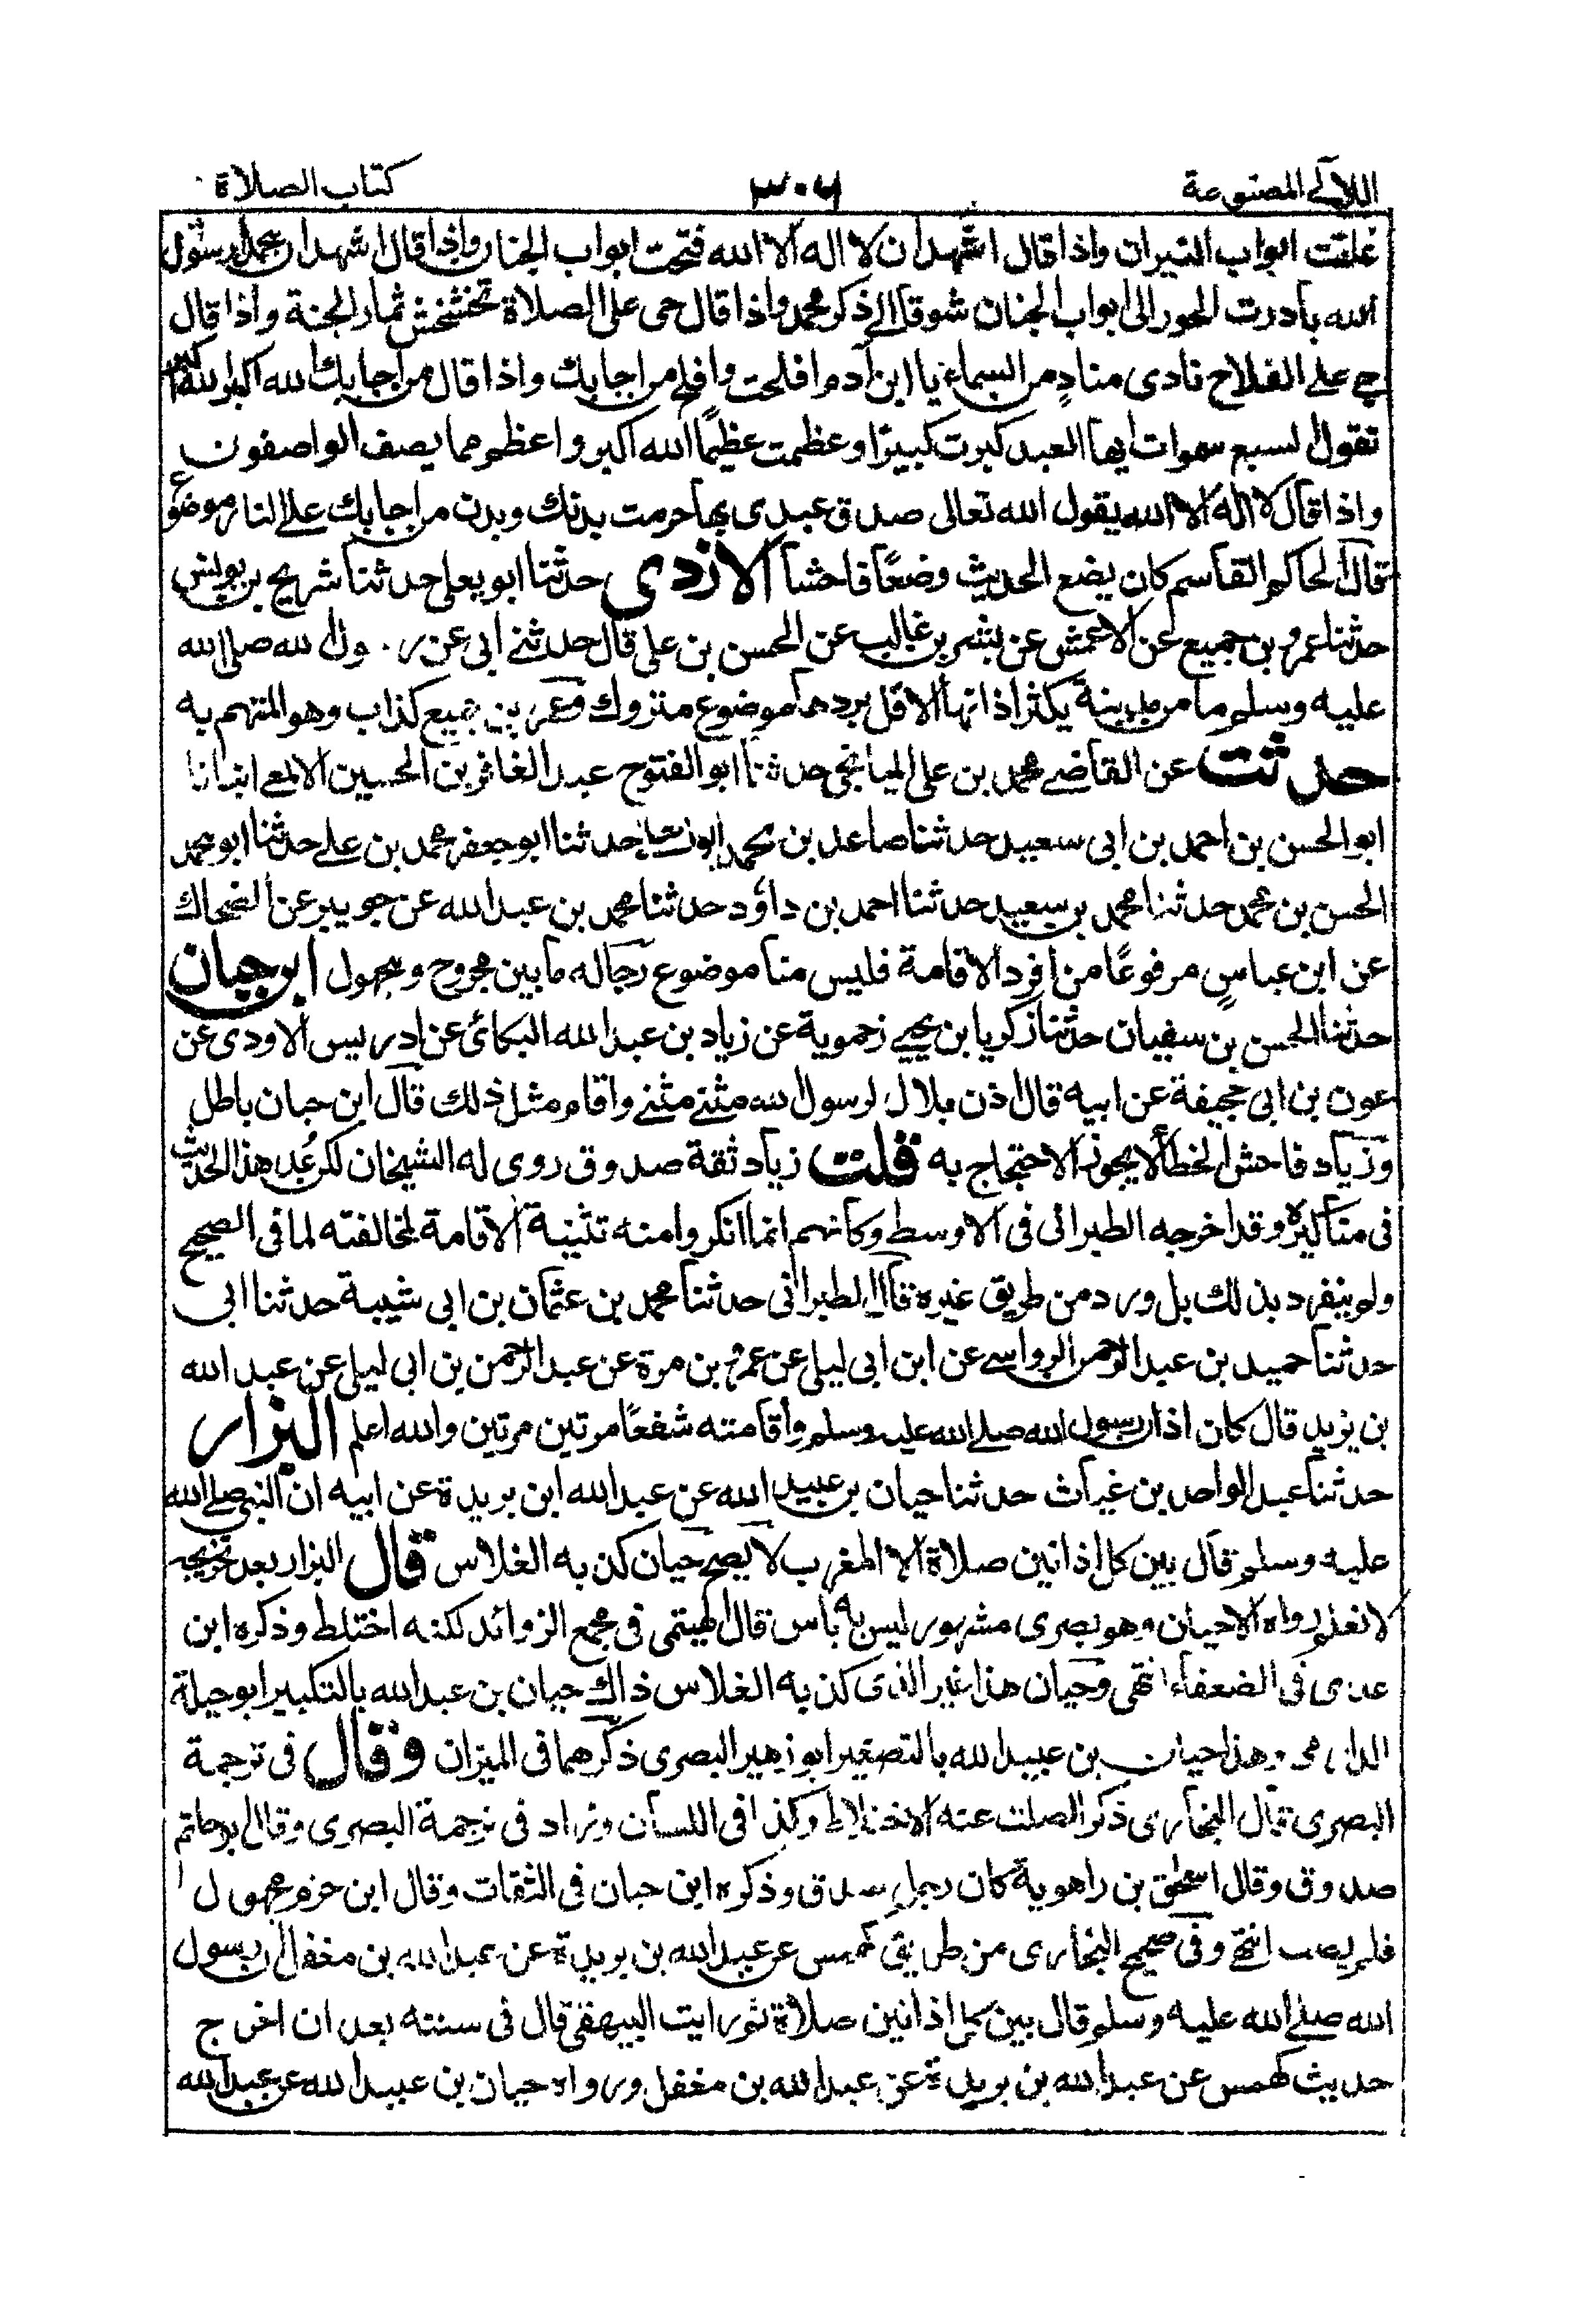 اللآلى المصنوعة ٣٠٦ كتاب الصلاة
غلقت ابواب النيران واذا قال اشهد ان لا اله الا الله فتحت ابواب الجنان واذا قال اشهد ان محمدا رسول
الله بادرت الحور الى ابواب الجنان شوقا الى ذكر محمد واذا قال حى على الصلاة تخشخش ثمار الجنة واذا قال
حى على الفلاح نادى منادٍ من السماء يا ابن آدم افلحت وافلح من اجابك واذا قال من اجابك الله اكبر الله اكبر
تقول لسبع سموات ايها العبد كبرت كبيرًا وعظمت عظيمًا الله اكبر واعظم مما يصف الواصفون
واذا قال لا اله الا الله يقول الله تعالى صدق عبدى بها حرمت بدنك وبدن من اجابك على النار موضوع
قال الحاكم القاسم كان يضع الحديث وضعًا فاحشا الازدى حدثنا ابو يعلى حدثنا شريح بن يونس
حدثنا عمرو بن جميع عن الاعمش عن بشر بن غالب عن الحسن بن على قال حدثنى ابى عن ر ول الله صلى الله
عليه وسلم ما من مدينة يكثر اذانها الا قل بردها موضوع متروك وعمرو بن جميع كذاب وهو المتهم به
حدثت عن القاضى محمد بن على الميانجى حدثنا ابو الفتوح عبد الغافر بن الحسين الالمعى انبانا
ابو الحسن بن احمد بن ابى سعيد حدثنا صاعد بن محمد حدثنا ابو جعفر محمد بن على حدثنا ابو محمد
الحسن بن محمد حدثنا محمد بن سعيد حدثنا احمد بن داؤد حدثنا محمد بن عبد الله عن جويبر عن الضحاك
عن ابن عباسٍ مرفوعًا من افرد الاقامة فليس منا موضوع رجاله ما بين مجروح ومجهول ابن حبان
حدثنا الحسن بن سفيان حدثنا زكريا بن يحيى زحموية عن زياد بن عبد الله البكائى عن ادريس الاودى عن
عون بن ابى جحيفة عن ابيه قال اذن بلال لرسول الله مثنى مثنى واقام مثل ذلك قال ابن حبان باطل
وزياد فاحش الخطأ لا يجوز الاحتجاج به قلت زياد ثقة صدوق روى له الشيخان لكن عُد هذا الحديث
فى مناكيره وقد اخرجه الطبرانى فى الاوسط وكانهم انما انكروا منه تثنية الاقامة لمخالفته لما فى الصحيح
ولم ينفرد بذلك بل ورد من طريق غيره قال الطبرانى حدثنا محمد بن عثمان بن ابى شيبة حدثنا ابى
حدثنا حميد بن عبد الرحمن الرواسى عن ابن ابى ليلى عن عمرو بن مرة عن عبد الرحمن بن ابى ليلى عن عبد الله
بن يزيد قال كان اذان رسول الله صلى الله عليه وسلم واقامته شفعًا مرتين مرتين والله اعلم البزار
حدثنا عبد الواحد بن غياث حدثنا حيان بن عبيد الله عن عبد الله ابن بريدة عن ابيه ان النبى صلى الله
عليه وسلم قال بين كل اذانين صلاة الا المغرب لا يصح حيان كذبه الفلاس قال البزار بعد تخريجه
لا نعلم رواه الا حيان وهو بصرى مشهور ليس به باس قال الهيتمى فى مجمع الزوائد لكنه اختلط وذكره ابن
عدى فى الضعفاء انتهى وحيان هذا غير الذى كذبه الفلاس ذاك حيان بن عبد الله بالتكبير ابو جبلة
الدارمى وهذا حيان بن عبيد الله بالتصغير ابو زهير البصرى ذكرهما فى الميزان وقال فى ترجمة
البصرى قال البخارى ذكر الصلت عنه الاختلاط وكذا فى اللسان وزاد فى ترجمة البصرى وقال ابو حاتم
صدوق وقال اسحق بن راهوية كان رجل صدق وذكره ابن حبان فى الثقات وقال ابن حزم مجهول
فلم يصب انتهى وفى صحيح البخارى من طريق كهمس عن عبد الله بن بريدة عن عبد الله بن مغفل ان رسول
الله صلى الله عليه وسلم قال بين كل اذانين صلاة ثم رايت البيهقى قال فى سننه بعد ان اخرج
حديث كهمس عن عبد الله بن بريدة عن عبد الله بن مغفل ورواه حيان بن عبيد الله عن عبد الله